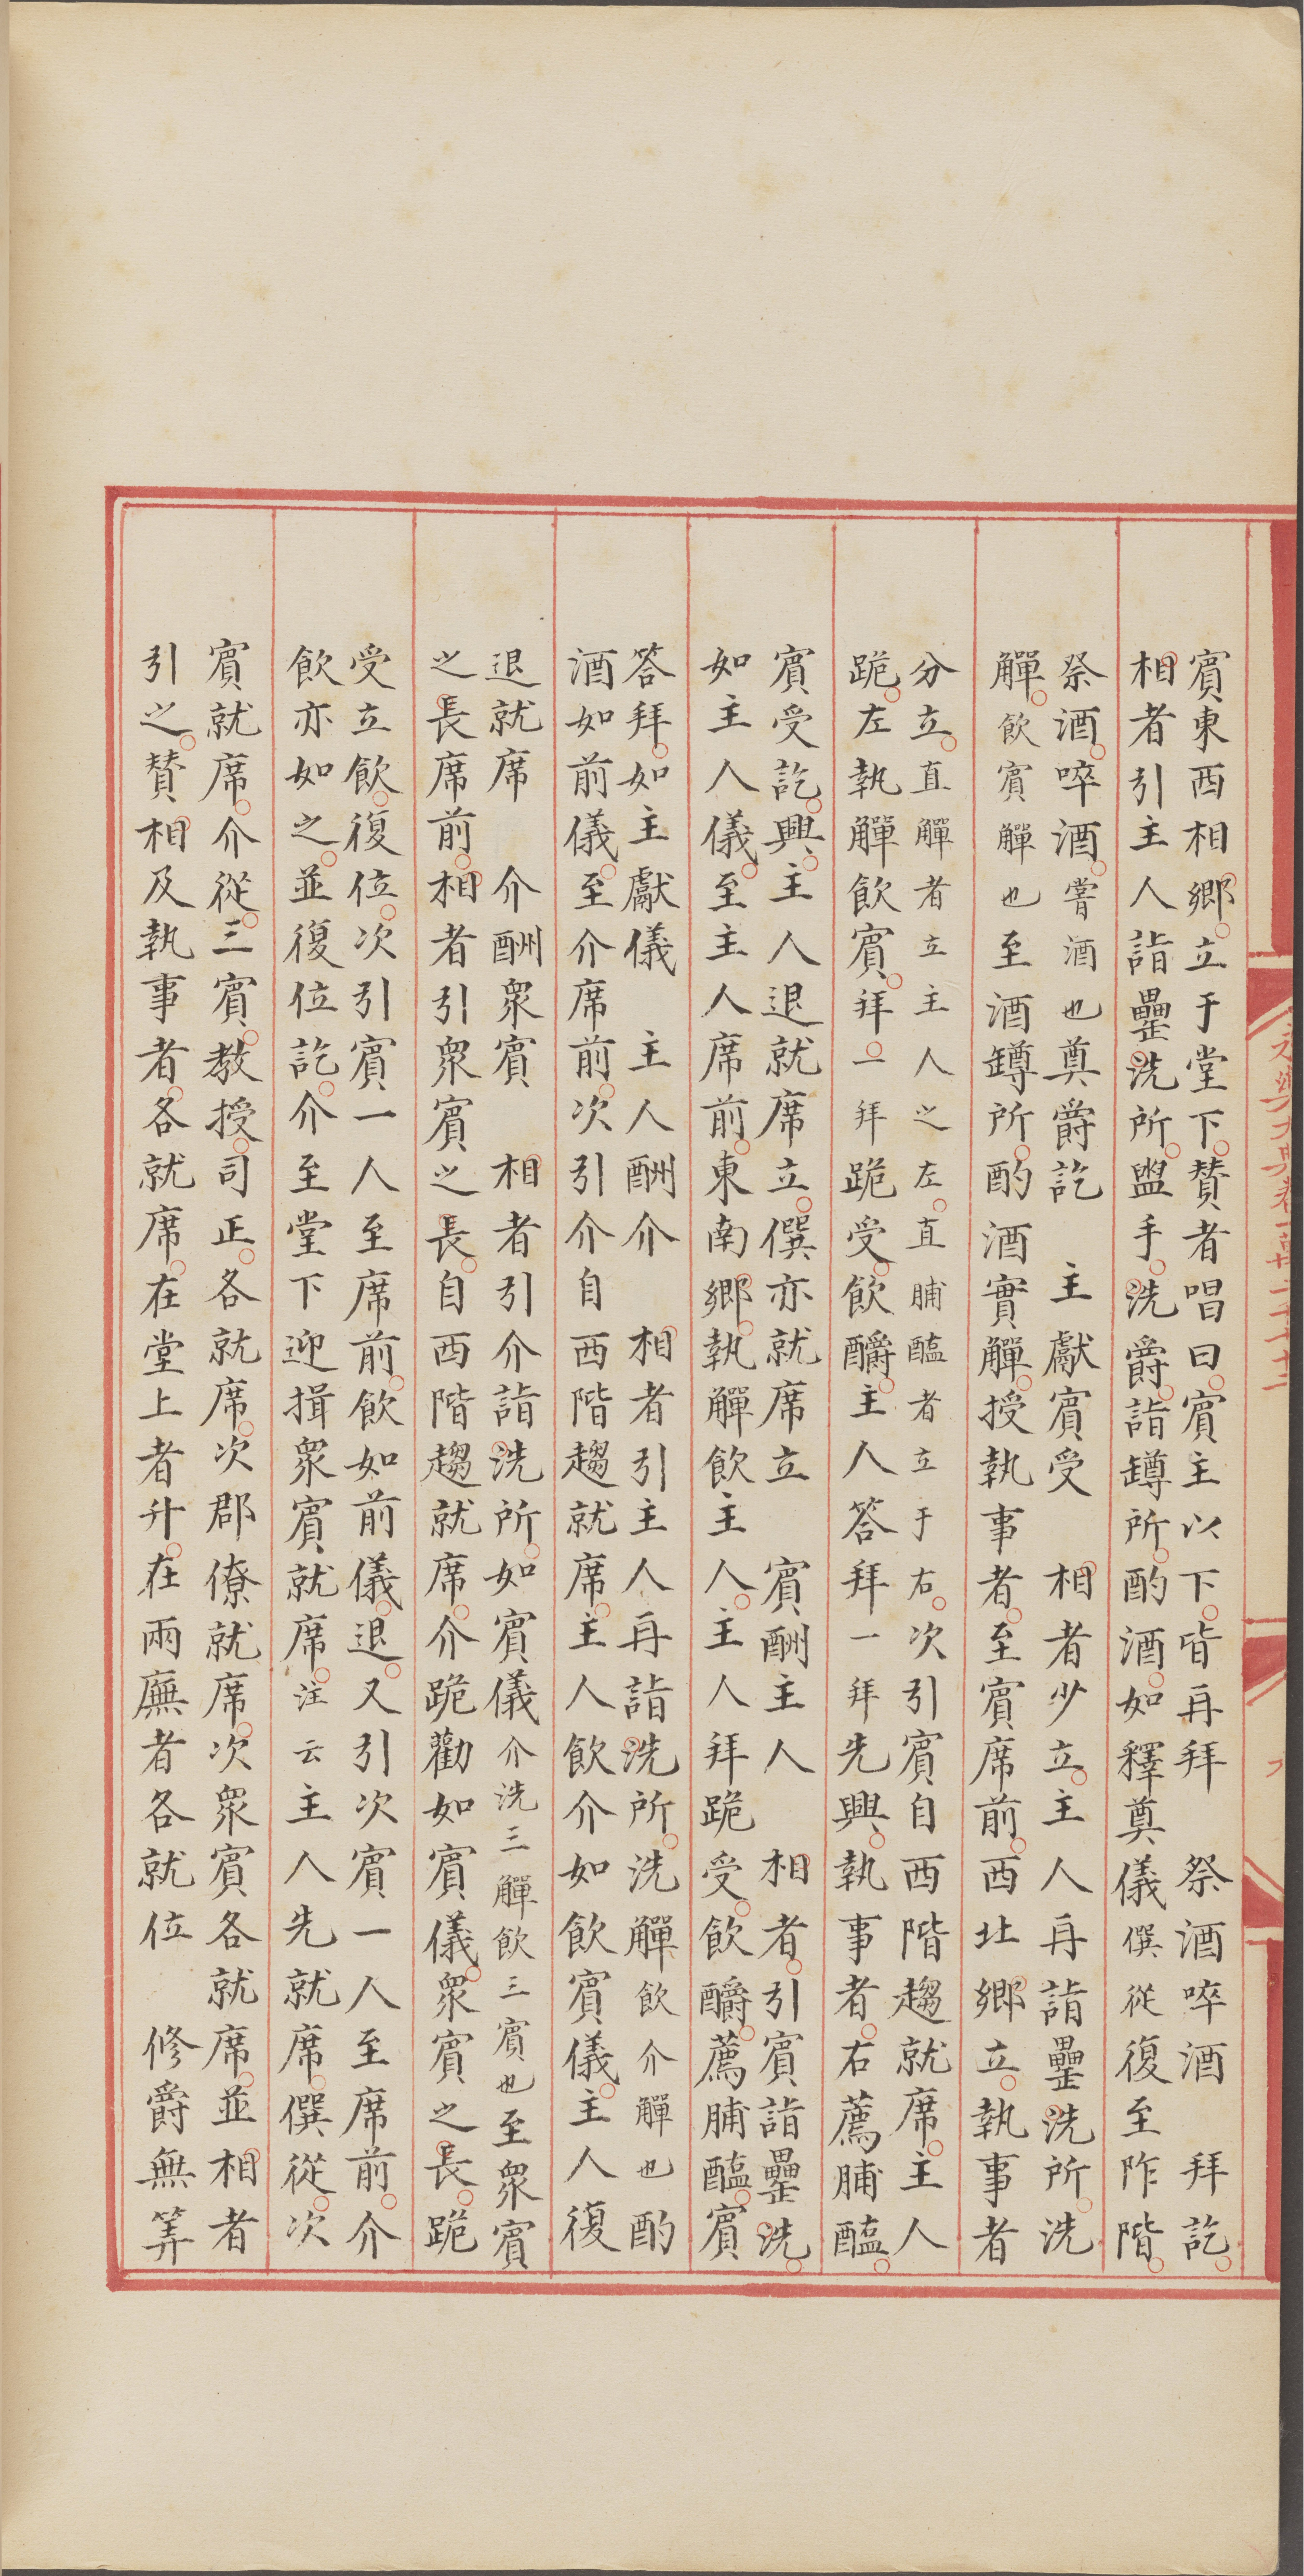 賓東西相鄉立于堂下贊者唱曰賓主以下皆再拜　祭酒啐酒　拜訖
相者引主人詣罍洗所盥手洗爵詣罇所酌酒如釋奠儀僎從復至阼階
祭酒啐酒嘗酒也奠爵訖　主獻賓受　相者少立主人再詣罍洗所洗
觶飲賓觶也至酒罇所酌酒實觶授執事者至賓席前西北鄉立執事者
分立直觶者立主人之左直脯醢者立于右次引賓自西階趨就席主人
跪左執觶飲賓拜一拜跪受飲釂主人答拜一拜先興執事者右薦脯醢
賓受訖興主人退就席立僎亦就席立　賓酬主人　相者引賓詣罍洗
如主人儀至主人席前東南鄉執觶飲主人主人拜跪受飲釂薦脯醢賓
答拜如主獻儀　主人酬介　相者引主人再詣洗所洗觶飲介觶也酌
酒如前儀至介席前次引介自西階趨就席主人飲介如飲賓儀主人復
退就席　介酬衆賓　相者引介詣洗所如賓儀介洗三觶飲三賓也至衆賓
之長席前相者引衆賓之長自西階趨就席介跪勸如賓儀衆賓之長跪
受立飲復位次引賓一人至席前飲如前儀退又引次賓一人至席前介
飲亦如之並復位訖介至堂下迎揖衆賓就席注云主人先就席僎從次
賓就席介從三賓教授司正各就席次郡僚就席次衆賓各就席並相者
引之贊相及執事者各就席在堂上者升在兩廡者各就位　修爵無筭
永樂大典卷一萬二千七十二
九